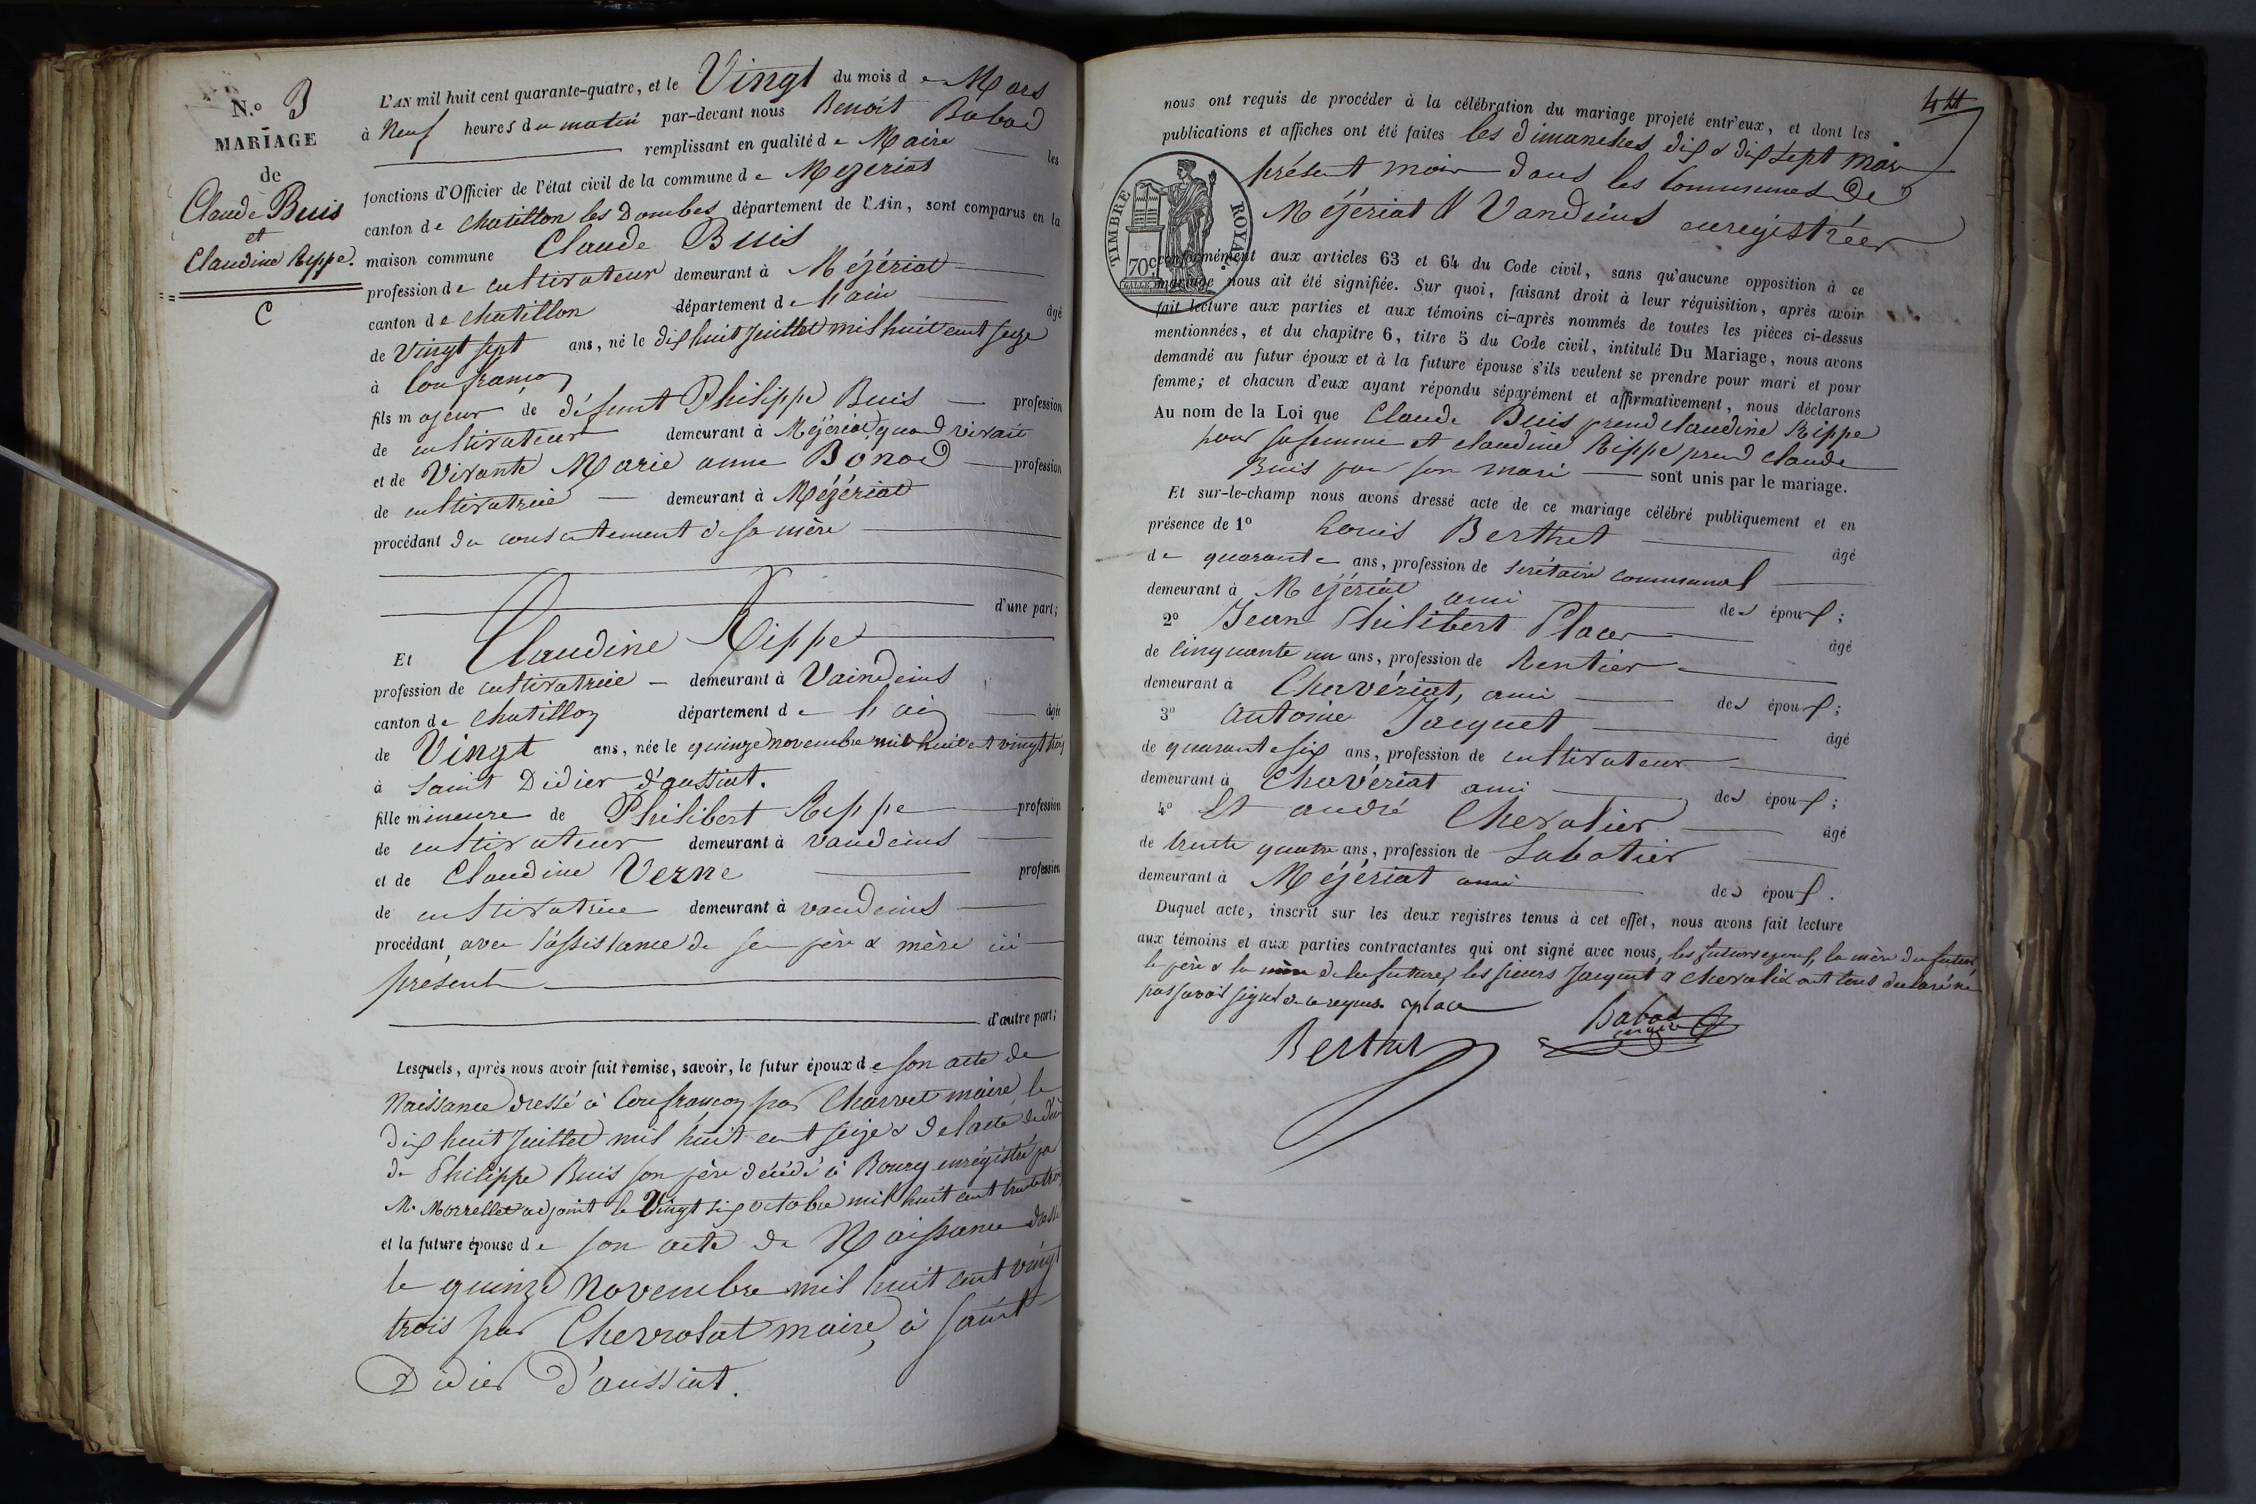 N.º 3
MARIAGE
de
Claude Buis
et
Claudine Rippe.
C
L'AN mil huit cent quarante-quatre, et le Vingt du mois de Mars
à Neuf heures du matin par-devant nous Benoît Babad
remplissant en qualité de Maire les
fonctions d'Officier de l'état civil de la commune de Mezeriat
canton de chatillon les Dombes département de l'Ain, sont comparus en la
maison commune Claude Buis
profession de cultivateur demeurant à Mézériat
canton de chatillon département de l'ain âgé
de Vingt sept ans, né le dix huit Juillet mil huit cent seize
à Confrançon
fils majeur de défunt Philippe Buis profession
de cultivateur demeurant à Mézériat quand vivait
et de Vivante Marie anne Bonod profession
de cultivatrice demeurant à Mézériat
procédant du consentement de sa mère
d'une part;
Et Claudine Rippe
profession de cultivatrice demeurant à Vaindeins
canton de Chatillon département de l'ain âgée
de Vingt ans, née le quinze novembre mil huit cent vingt trois
à Saint Didier d'aussiat.
fille mineure de Philibert Rippe profession
de cultivateur demeurant à vandeins
et de Claudine Verne profession
de cultivatrice demeurant à vandeins
procédant avec l'assistance de se père & mère ici
présent
d'autre part;
Lesquels, après nous avoir fait remise, savoir, le futur époux de son acte de
Naissance dressé à Confrançon par Charvet maire, le
dix huit Juillet mil huit cent seize & de l'acte de décè
de Philippe Buis son père décédé à Bourg enregistré par
M. Morrellet adjoint le Vingt six octobre mil huit cent trente trois
et la future épouse de son acte de Naissance dressé
le quinze Novembre mil huit cent vingt
trois par Chevrolat maire, à saint
Didier d'aussiat.
44
nous ont requis de procéder à la célébration du mariage projeté entr'eux, et dont les
publications et affiches ont été faites les dimanches, dix & dix sept mars
présent mois dans les Communes de
Mézériat & Vandeins enregistrées
TIMBRE ROYAL
70c
conformément aux articles 63 et 64 du Code civil, sans qu'aucune opposition à ce
mariage nous ait été signifiée. Sur quoi, faisant droit à leur réquisition, après avoir
fait lecture aux parties et aux témoins ci-après nommés de toutes les pièces ci-dessus
mentionnées, et du chapitre 6, titre 5 du Code civil, intitulé Du Mariage, nous avons
demandé au futur époux et à la future épouse s'ils veulent se prendre pour mari et pour
femme; et chacun d'eux ayant répondu séparément et affirmativement, nous déclarons
Au nom de la Loi que Claude Buis prend claudine Rippe
pour sa femme et claudine Rippe prend Claude
Buis pour son mari sont unis par le mariage.
Et sur-le-champ nous avons dressé acte de ce mariage célébré publiquement et en
présence de 1º Louis Berthet âgé
de quarante ans, profession de secrétaire communal
demeurant à Mézériat ami des époux;
2º Jean Philibert Place âgé
de Cinquante un ans, profession de Rentier
demeurant à Chavériat, ami des époux;
3º antoine Jacquet âgé
de quarante six ans, profession de cultivateur
demeurant à Chavériat ami des époux;
4º Et andré Chevalier âgé
de trente quatre ans, profession de Sabotier
demeurant à Mézériat ami des époux.
Duquel acte, inscrit sur les deux registres tenus à cet effet, nous avons fait lecture
aux témoins et aux parties contractantes qui ont signé avec nous, les futurs époux, la mère du futur,
le père & la mère de la future, les sieurs Jacquet & Chevalier ont tous déclaré ne
pas savoir signer de ce requis. place
Berthet
Babad
maire